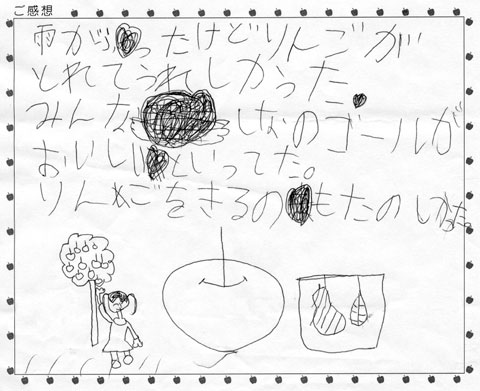 ご感想
雨がふったけどりんごが
とれてうれしかった
みんな しなのゴールが
おいしいといってた。
りんごをきるのもたのしかった。